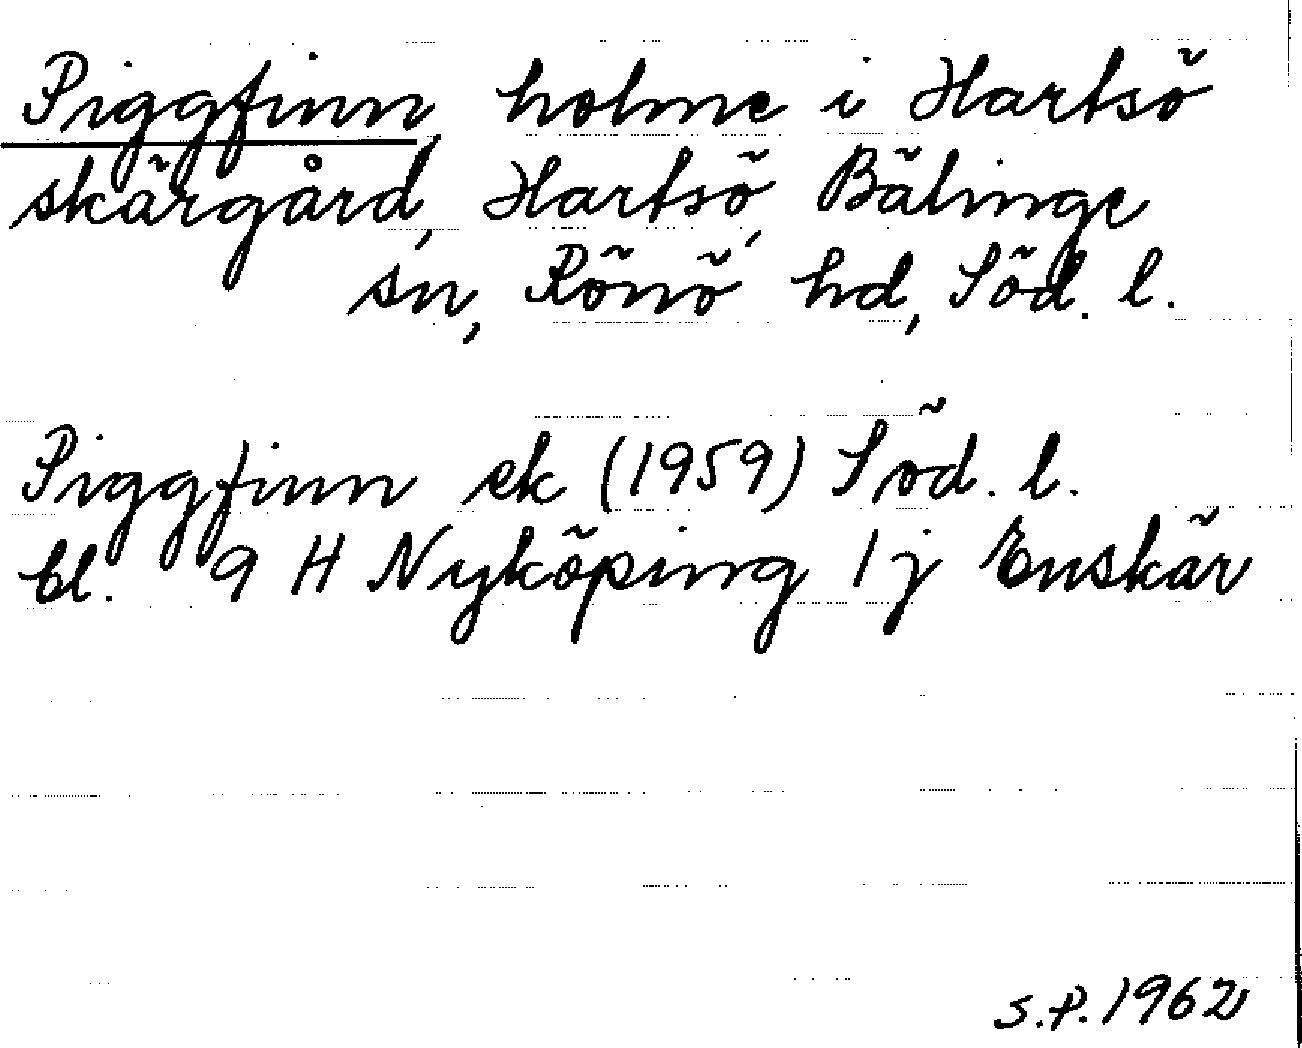 Piggfinn, holme i Hartsö
skärgård, Hartsö, Bälinge
sn, Rönö hd, Söd. l.
Piggfinn ek (1959) Söd. l.
bl. 9 H Nyköping 1 j Enskär
S.P. 1962